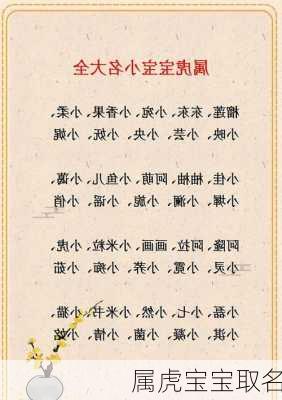 属虎宝宝小名大全
榴莲、东东、小宛、小香果、小柔、
小映、小芸、小央、小妩、小娓
小佳、柚柚、阿萌、小鱼儿、小蔼、
小墀、小澜、小脆、小谣、小俏
阿隆、阿拉、画画、小米粒、小虎、
小灵、小霓、小荞、小痴、小茹
小磊、小七、小然、小米书、小猫、
小淇、小凝、小菌、小情、
属虎宝宝取名